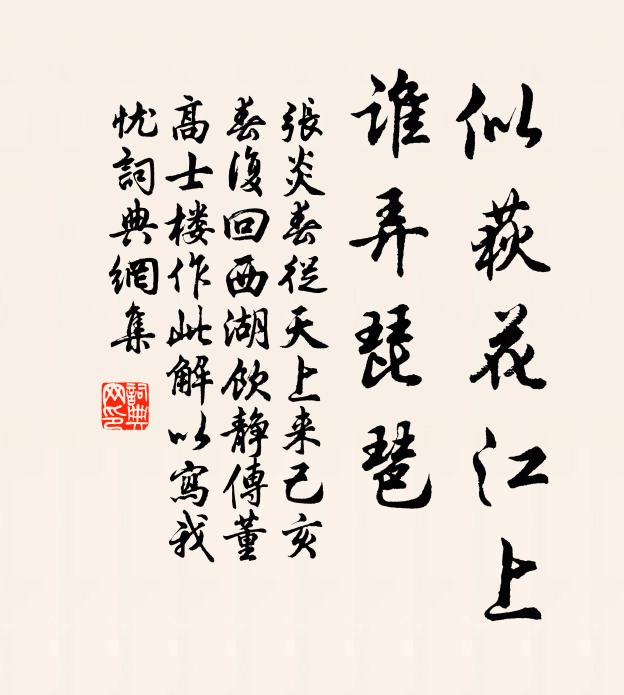 似荻花江上
谁弄琵琶
張炎春從天上来己亥
春復回西湖飲静傳董
高士楼作此解以寫我
忧詞典網集
詞典
网印